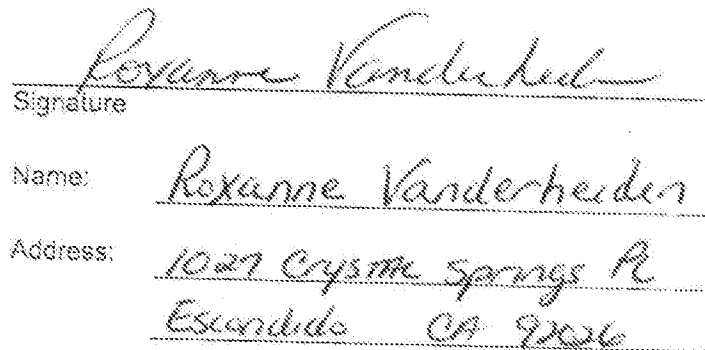 Roxanne Vanderheiden
Signature
Name: Roxanne Vanderheiden
Address: 1027 Crystal Springs Pl
Escondido CA 92026